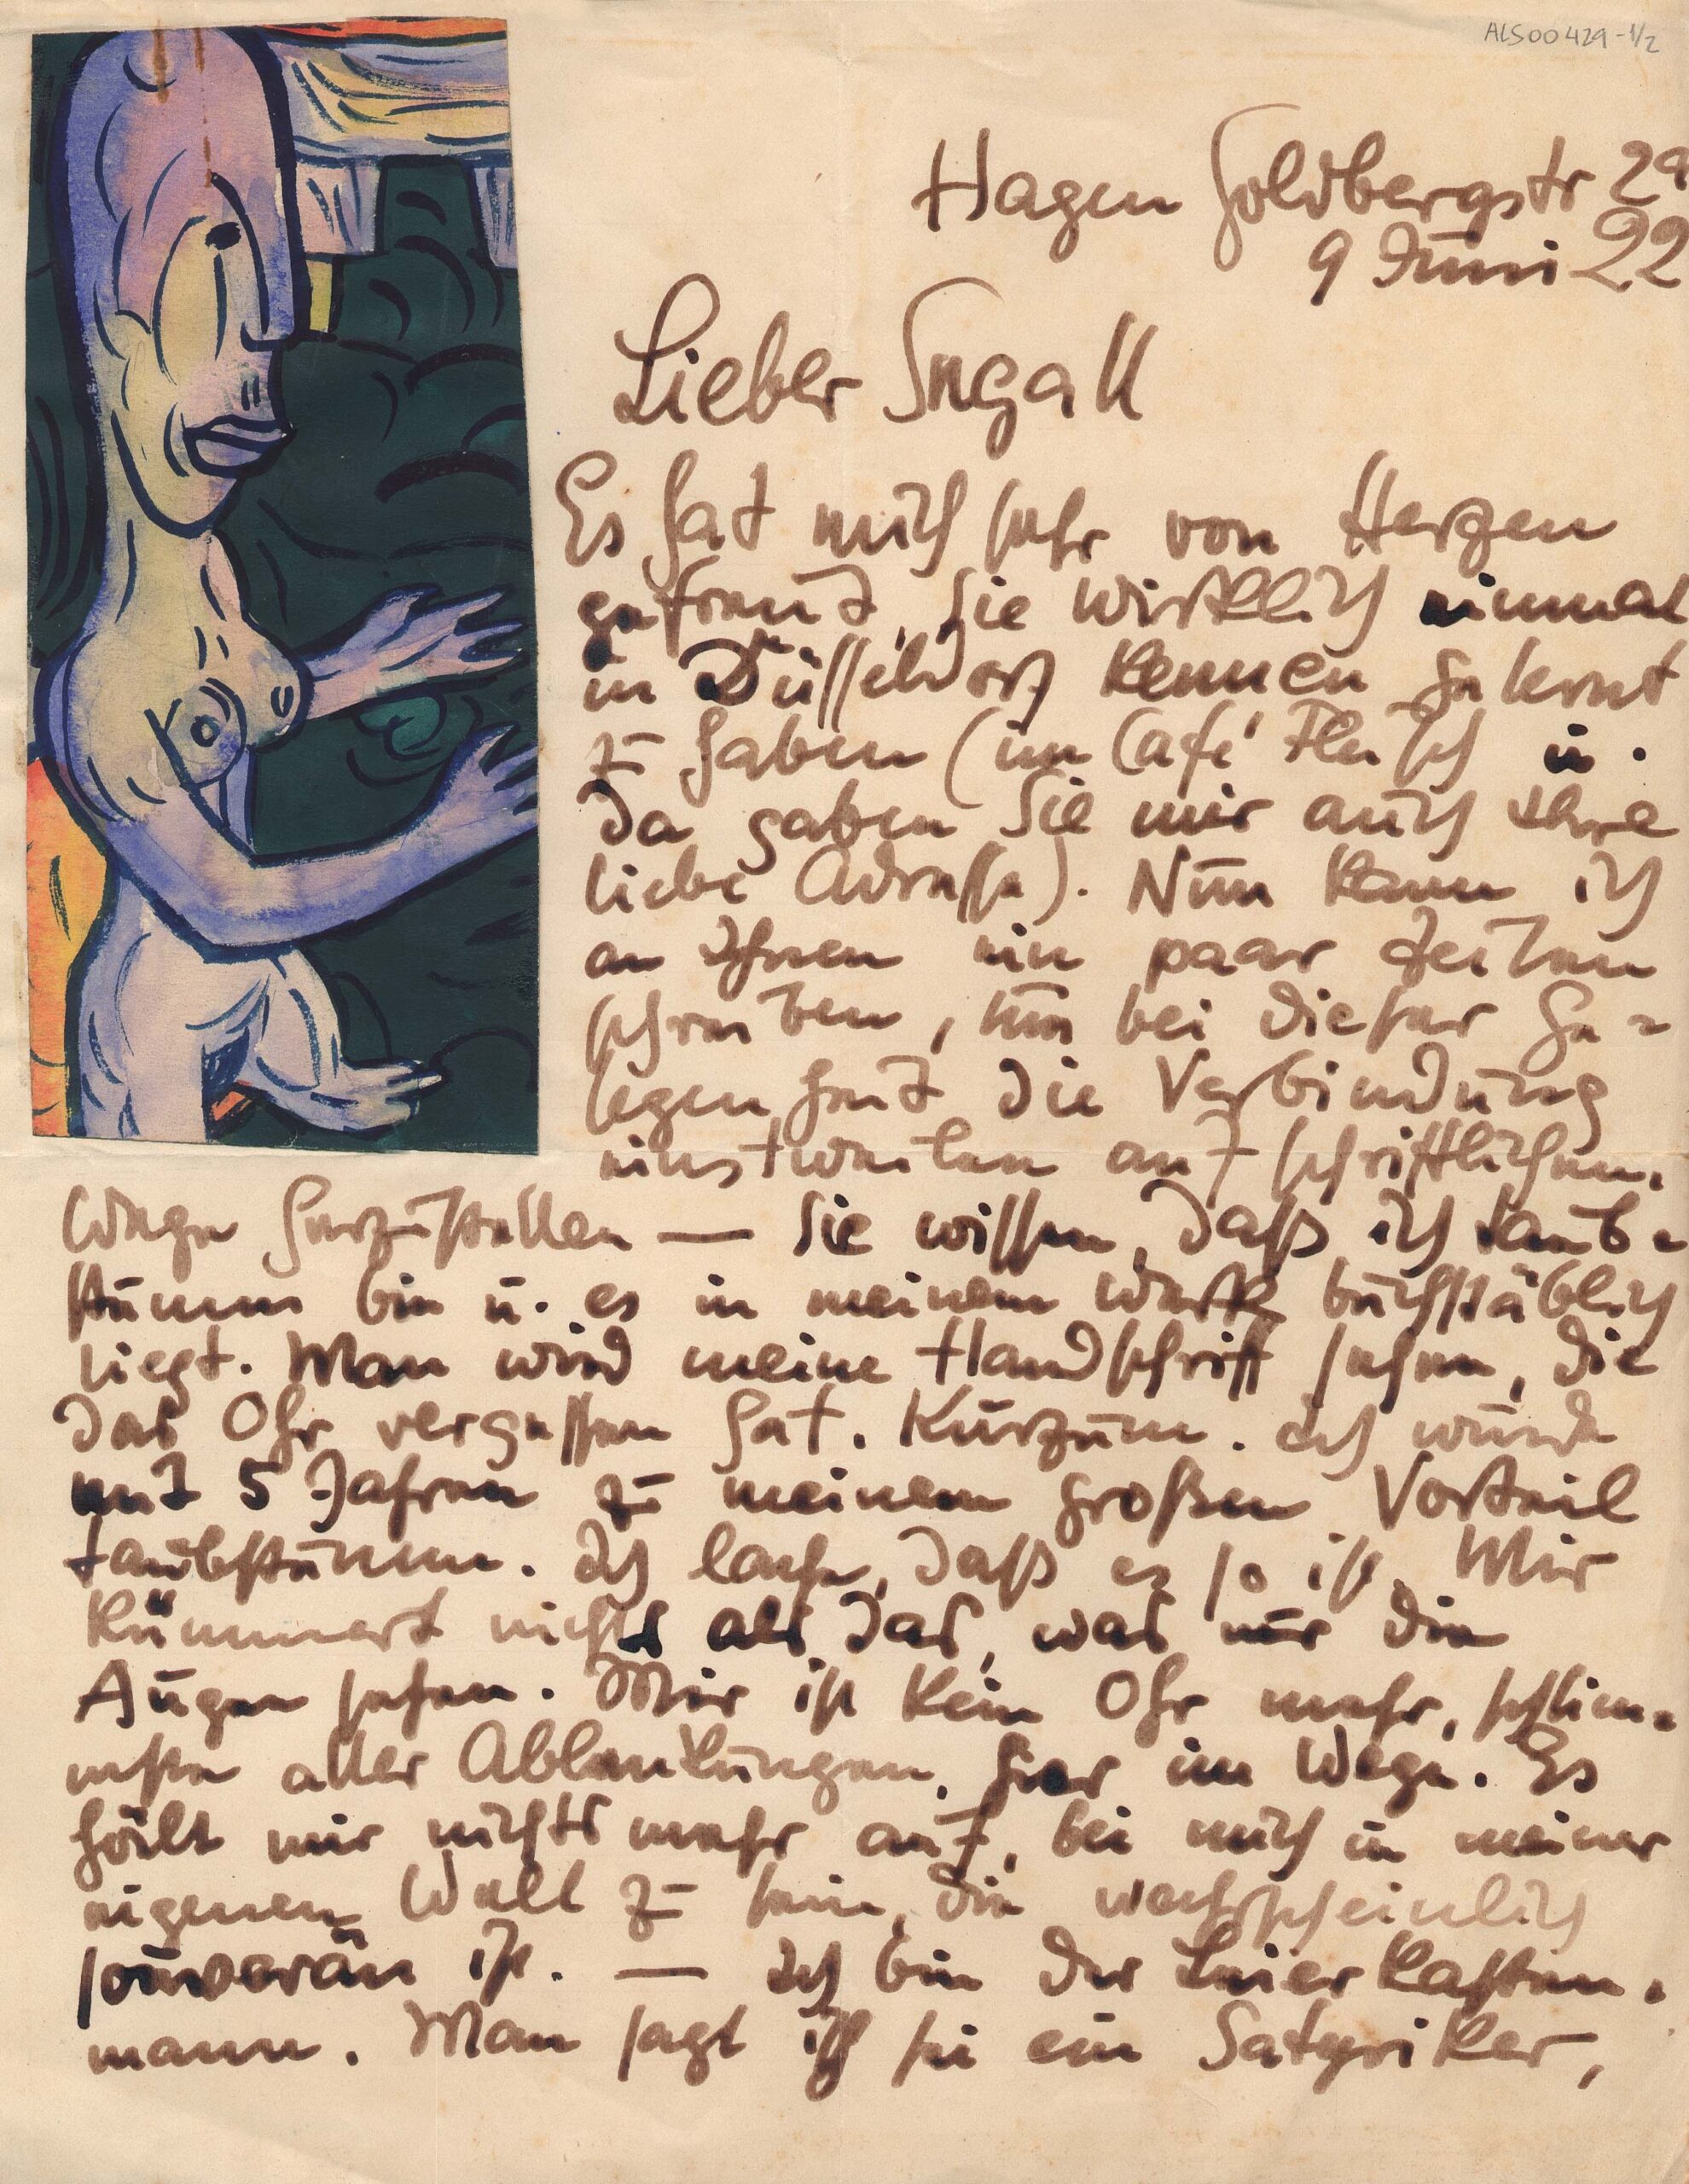 ALS00429-1/2
Hagen Goldbergstr 29
9 Juni 22
Lieber Sngall
Es hat mich sehr von Herzen
gefreut, Sie wirklich einmal
in Düsseldorf kennen gelernt
zu haben (im Café u.
da gaben Sie mir auch Ihre
liebe Adresse). Nun kann ich
an Ihnen ein paar Zeilen
schreiben, um bei dieser Ge-
legenheit die Verbindung
einstweilen auf schriftlichem
Wege herzustellen — Sie wissen, daß ich taub-
stumm bin u. es in meinem Werk buchstäblich
liegt. Man wird meine Handschrift sehen, die
das Ohr vergessen hat. Kurzum. Ich wurde
mit 5 Jahren zu meinem großen Vorteil
taubstumm. Ich lache, daß es so ist. Mir
kümmert nichts als das, was nur die
Augen sehen. Mir ist kein Ohr mehr, schlim-
mste aller Ablenkungen, hier im Wege. Es
hält mir nichts mehr auf, bei mich in meiner
eigenen Welt zu sein, die wahrscheinlich
souverän ist. — Ich bin der Leierkasten-
mann. Man sagt ich sei ein Satyriker,